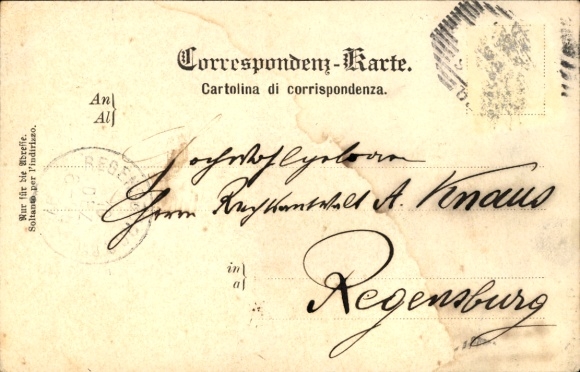 Correspondenz-Karte.
Cartolina di corrispondenza.
An
Al
Nur für die Adresse.
Soltanto per l'indirizzo.
REGEN
Hochwohlgeboren
Herrn Rechtsanwalt A. Knaus
in
a
Regensburg